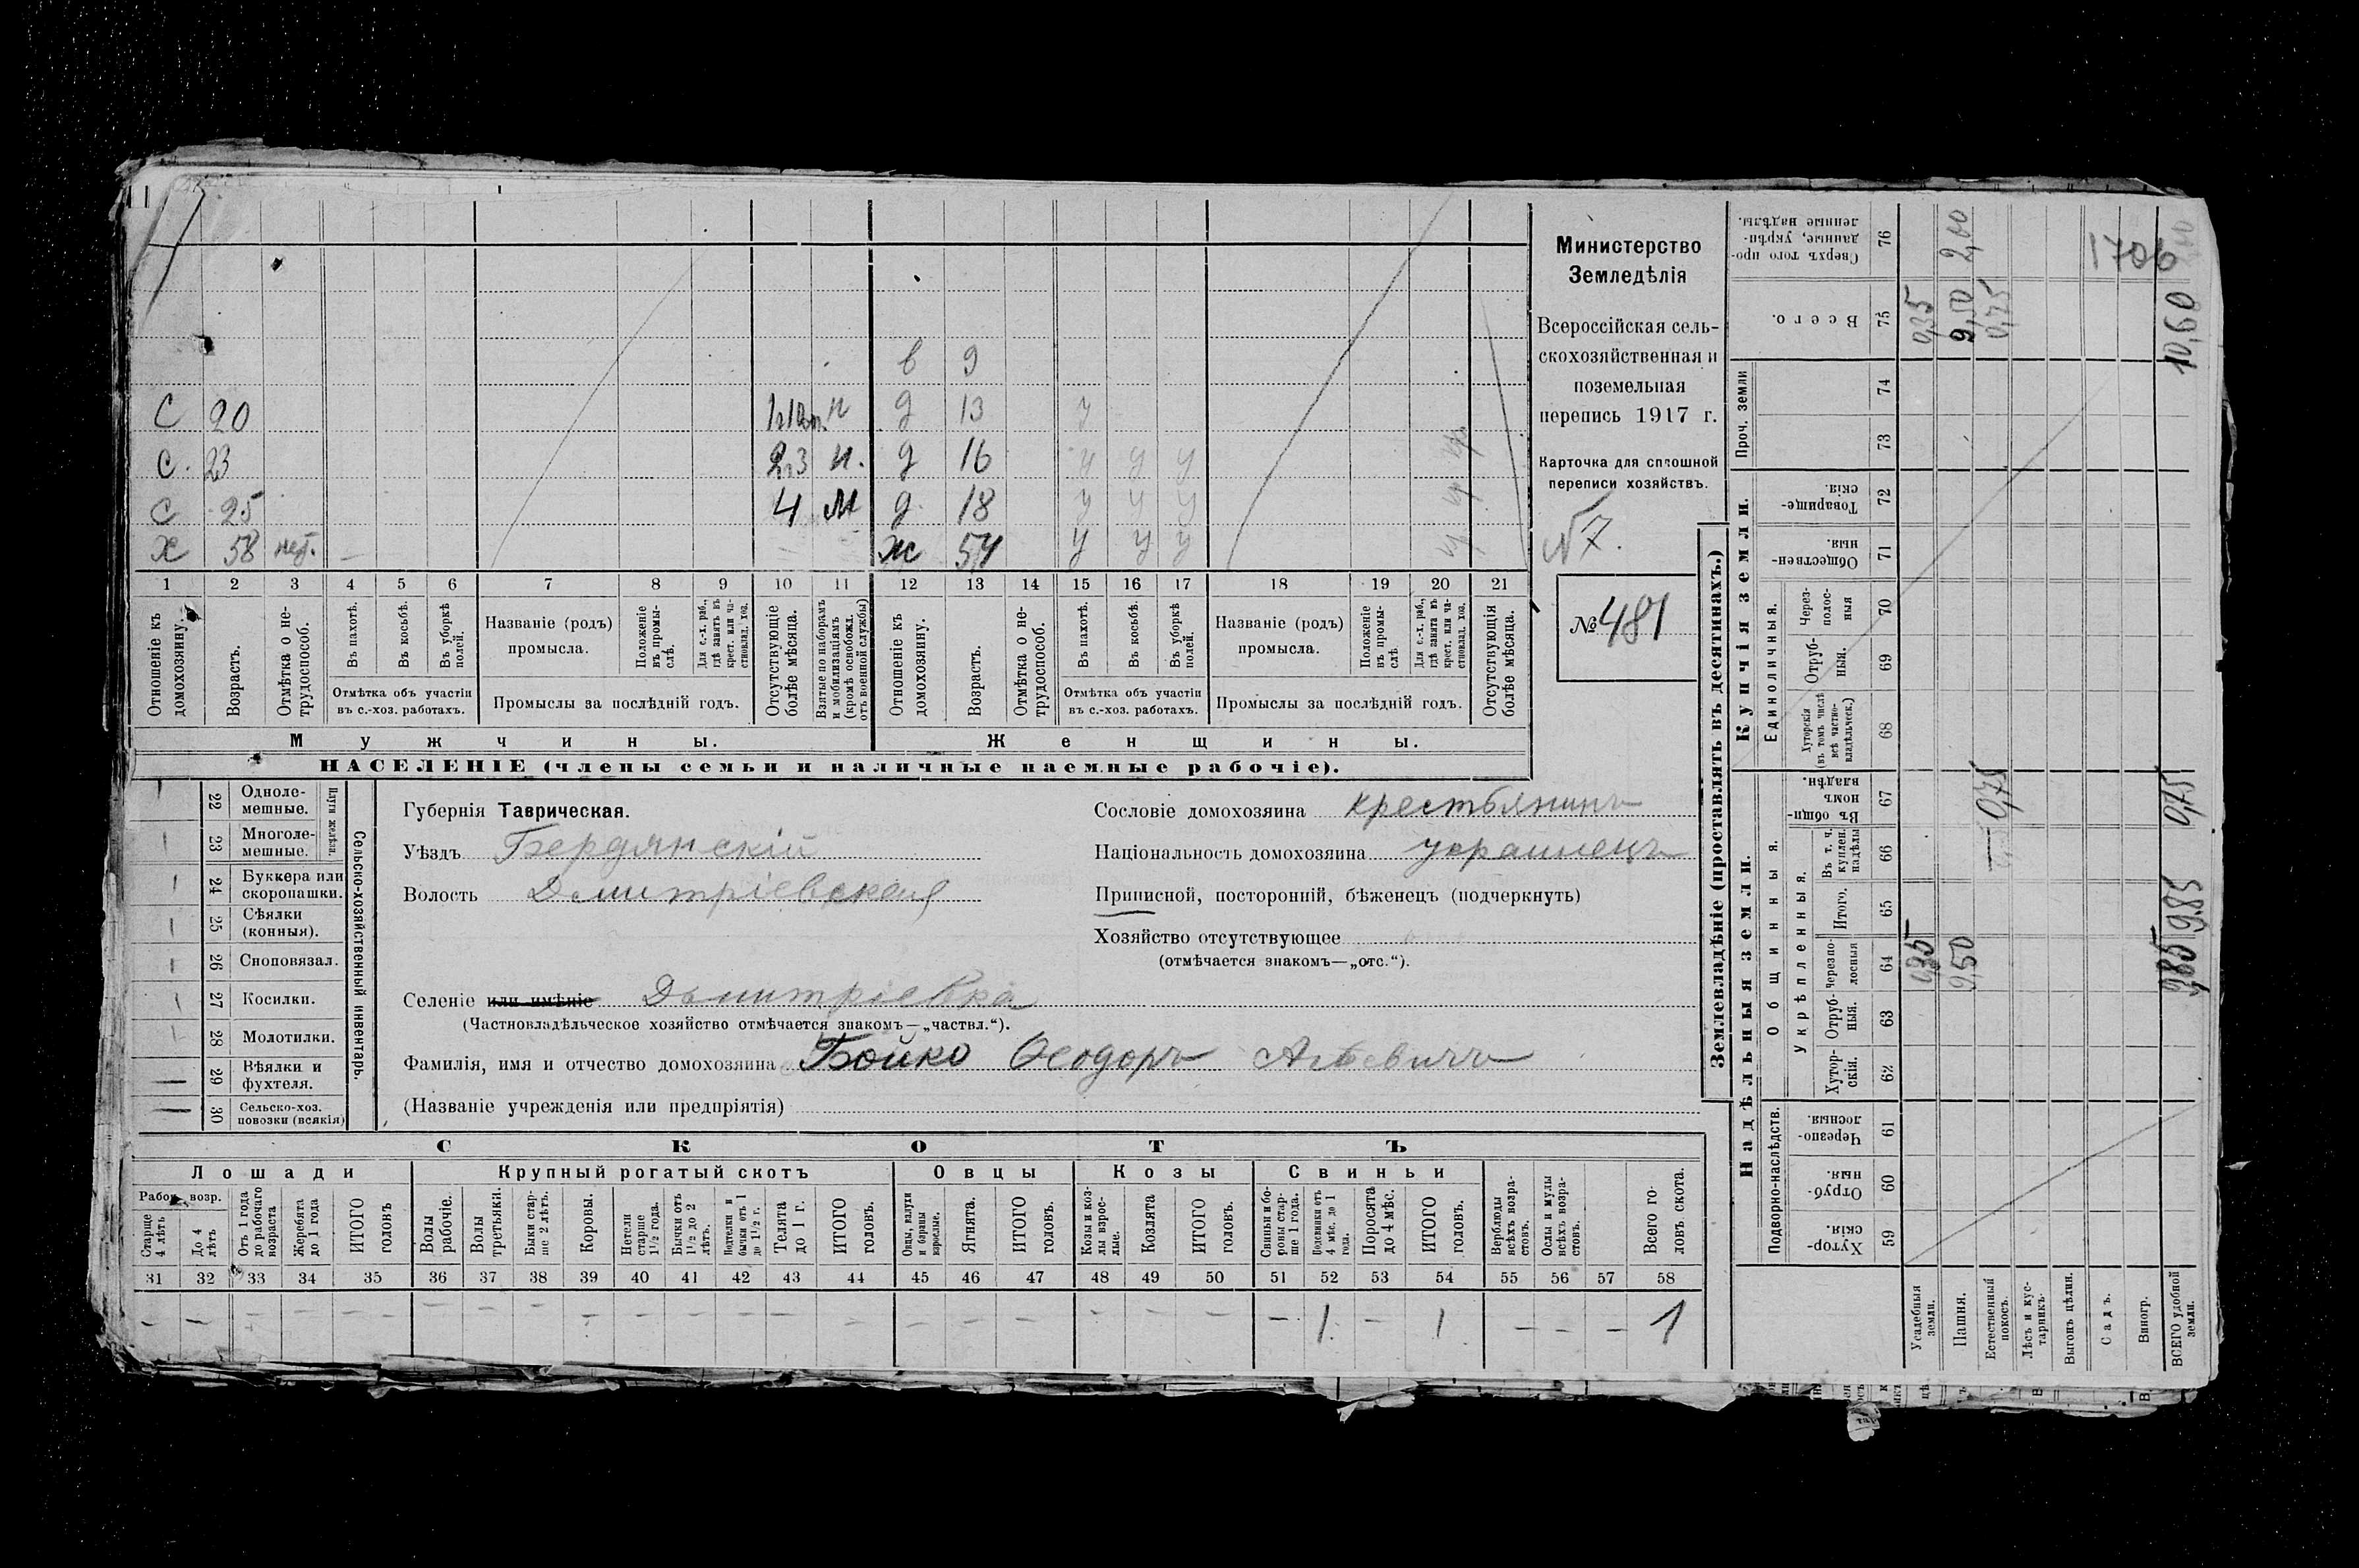 в 9
С 20 н д 13 у
с. 23 2,3 н. д 16 у у у
с 25 4 м д. 18 у у у
х 58 нет. ж 54 у у у
1 2 3 4 5 6 7 8 9 10 11 12 13 14 15 16 17 18 19 20 21
Отношеніе къ домохозяину.
Возрастъ.
Отмѣтка о нетрудоспособ.
Въ пахотѣ.
Въ косьбѣ.
Въ уборкѣ полей.
Отмѣтка объ участіи
въ с.-хоз. работахъ.
Названіе (родъ)
промысла.
Положеніе въ промыслѣ.
Для с.-х. раб., гдѣ занятъ въ крест. или частновлад. хоз.
Промыслы за послѣдній годъ.
Отсутствующіе болѣе мѣсяца.
Взятые по наборамъ и мобилизаціямъ (кромѣ освобожд. отъ военной службы)
Отношеніе къ домохозяину.
Возрастъ.
Отмѣтка о нетрудоспособ.
Въ пахотѣ.
Въ косьбѣ.
Въ уборкѣ полей.
Отмѣтка объ участіи
въ с.-хоз. работахъ.
Названіе (родъ)
промысла.
Положеніе въ промыслѣ.
Для с.-х. раб., гдѣ занята въ крест. или частновлад. хоз.
Промыслы за послѣдній годъ.
Отсутствующія болѣе мѣсяца.
Мужчины. Женщины.
НАСЕЛЕНІЕ (члены семьи и наличные наемные рабочіе).
Министерство
Земледѣлія
Всероссійская сель-
скохозяйственная и
поземельная
перепись 1917 г.
Карточка для сплошной
переписи хозяйствъ.
N 7.
№ 481
Сельско-хозяйственный инвентарь.
Плуги желѣзн.
22 Одноле-
мешные.
23 Многоле-
мешные.
24 Буккера или
скоропашки.
25 Сѣялки
(конныя).
26 Сноповязал.
27 Косилки.
28 Молотилки.
29 Вѣялки и
фухтеля.
30 Сельско-хоз.
повозки (всякія)
Губернія Таврическая.
Уѣздъ Бердянскій
Волость Дмитріевская
Сословіе домохозяина крестьянинъ
Національность домохозяина украинецъ
Приписной, посторонній, бѣженецъ (подчеркнуть)
Хозяйство отсутствующее
(отмѣчается знакомъ—„отс.“).
Селеніе или имѣніе Дмитріевка
(Частновладѣльческое хозяйство отмѣчается знакомъ—„частвл.“).
Фамилія, имя и отчество домохозяина Бойко Ѳеодоръ
(Названіе учрежденія или предпріятія)
СКОТЪ
Лошади Крупный рогатый скотъ Овцы Козы Свиньи
Рабоч. возр.
Старше 4 лѣтъ
До 4 лѣтъ
Отъ 1 года до рабочаго возраста
Жеребята до 1 года
ИТОГО головъ
Волы рабочіе.
Волы третьяки.
Быки старше 2 лѣтъ.
Коровы.
Нетели старше 1½ года.
Бычки отъ 1½ до 2 лѣтъ.
Подтелки и бычки отъ 1 до 1½ г.
Телята до 1 г.
ИТОГО головъ.
Овцы, валухи и бараны взрослые.
Ягнята.
ИТОГО головъ.
Козы и козлы взрослые.
Козлята
ИТОГО головъ.
Свиньи и боровы старше 1 года.
Подсвинки отъ 4 мѣс. до 1 года.
Поросята до 4 мѣс.
ИТОГО головъ.
Верблюды всѣхъ возрастовъ.
Ослы и мулы всѣхъ возрастовъ.
Всего головъ скота.
31 32 33 34 35 36 37 38 39 40 41 42 43 44 45 46 47 48 49 50 51 52 53 54 55 56 57 58
– – – – – – – – – – – – – – – – – – – – – 1 – 1 – – – 1
Землевладѣніе (проставлять въ десятинахъ.)
Надѣльныя земли. Купчія земли. Проч. земли
Подворно-наслѣдств.
Общинныя.
Укрѣпленныя.
Единоличныя.
Хуторскія 59
Отрубныя. 60
Черезполосныя 61
Хуторскія. 62
Отрубныя. 63
Черезполосныя 64
Итого. 65
Въ т. ч. куплен. надѣлы 66
Въ общинномъ владѣн. 67
Хуторскія (въ томъ числѣ всѣ частновладѣльческ.) 68
Отрубныя. 69
Черезполосныя 70
Общественныя. 71
Товарищескія. 72
73
74
Всего. 75
Сверхъ того проданные, укрѣпленные надѣлы. 76
Усадебныя земли. 0,35 0,35
Пашня. 9,50 9,50 2,00
Естественный покосъ. 0,75 0,75
Лѣсъ и кустарникъ.
Выгонъ цѣлин.
Садъ.
Виногр.
ВСЕГО удобной земли. 9,85 9,85 0,75 10,60
1706